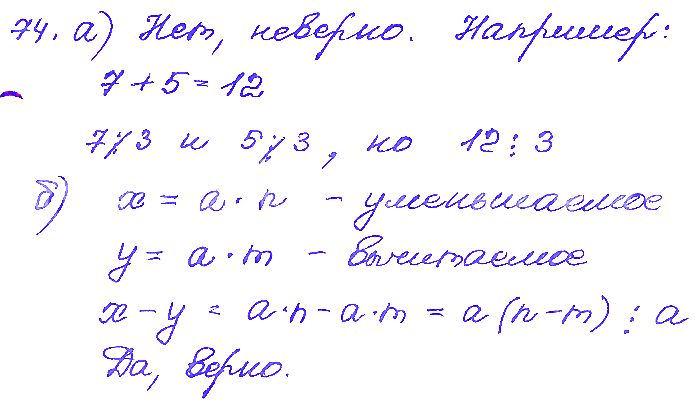 74. а) Нет, неверно. Например:
7 + 5 = 12
7⋮̸3 и 5⋮̸3, но 12⋮3
б) x = a·n - уменьшаемое
y = a·m - вычитаемое
x - y = a·n - a·m = a(n - m) ⋮ a
Да, верно.